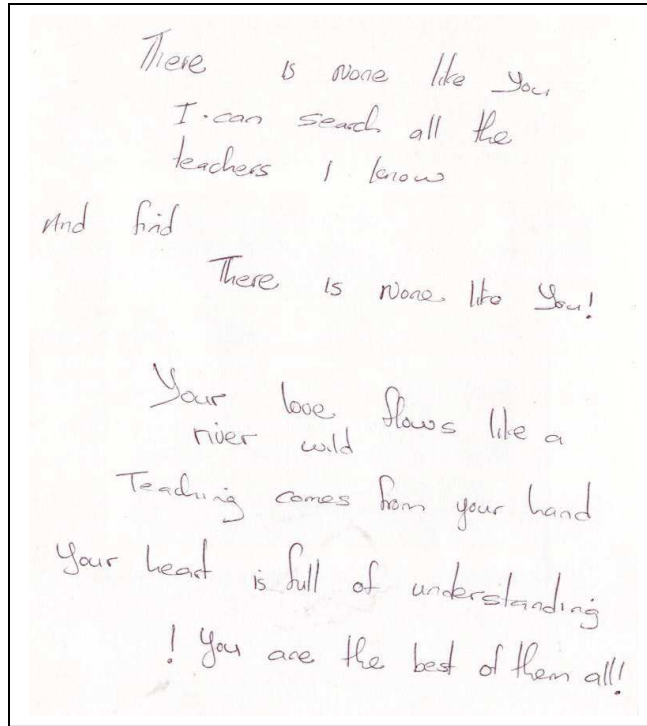 There is none like you
I can search all the
teachers I know
And find
There is none like you!
Your love flows like a
river wild
Teaching comes from your hand
Your heart is full of understanding
! You are the best of them all!